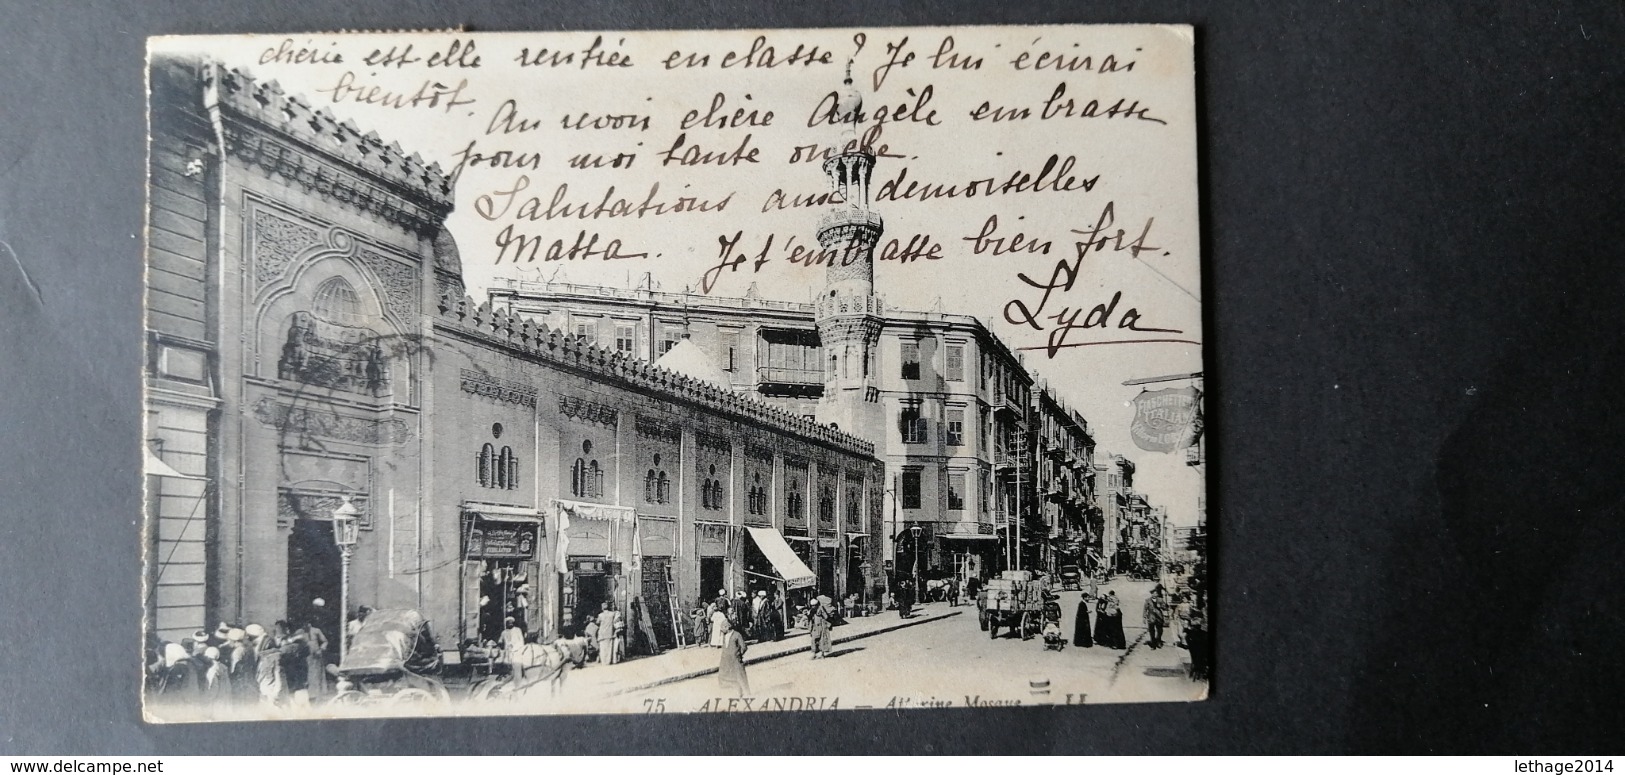 chérie est-elle rentrée en classe ? Je lui écrirai
bientôt.
Au revoir chère Angèle embrasse
pour moi tante oncle.
Salutations aux demoiselles
Massa. Je t'embrasse bien fort.
Lyda
FIASCHETTERIA
ITALIANA
75 ALEXANDRIA — Attarine Mosque — LL
www.delcampe.net
lethage2014